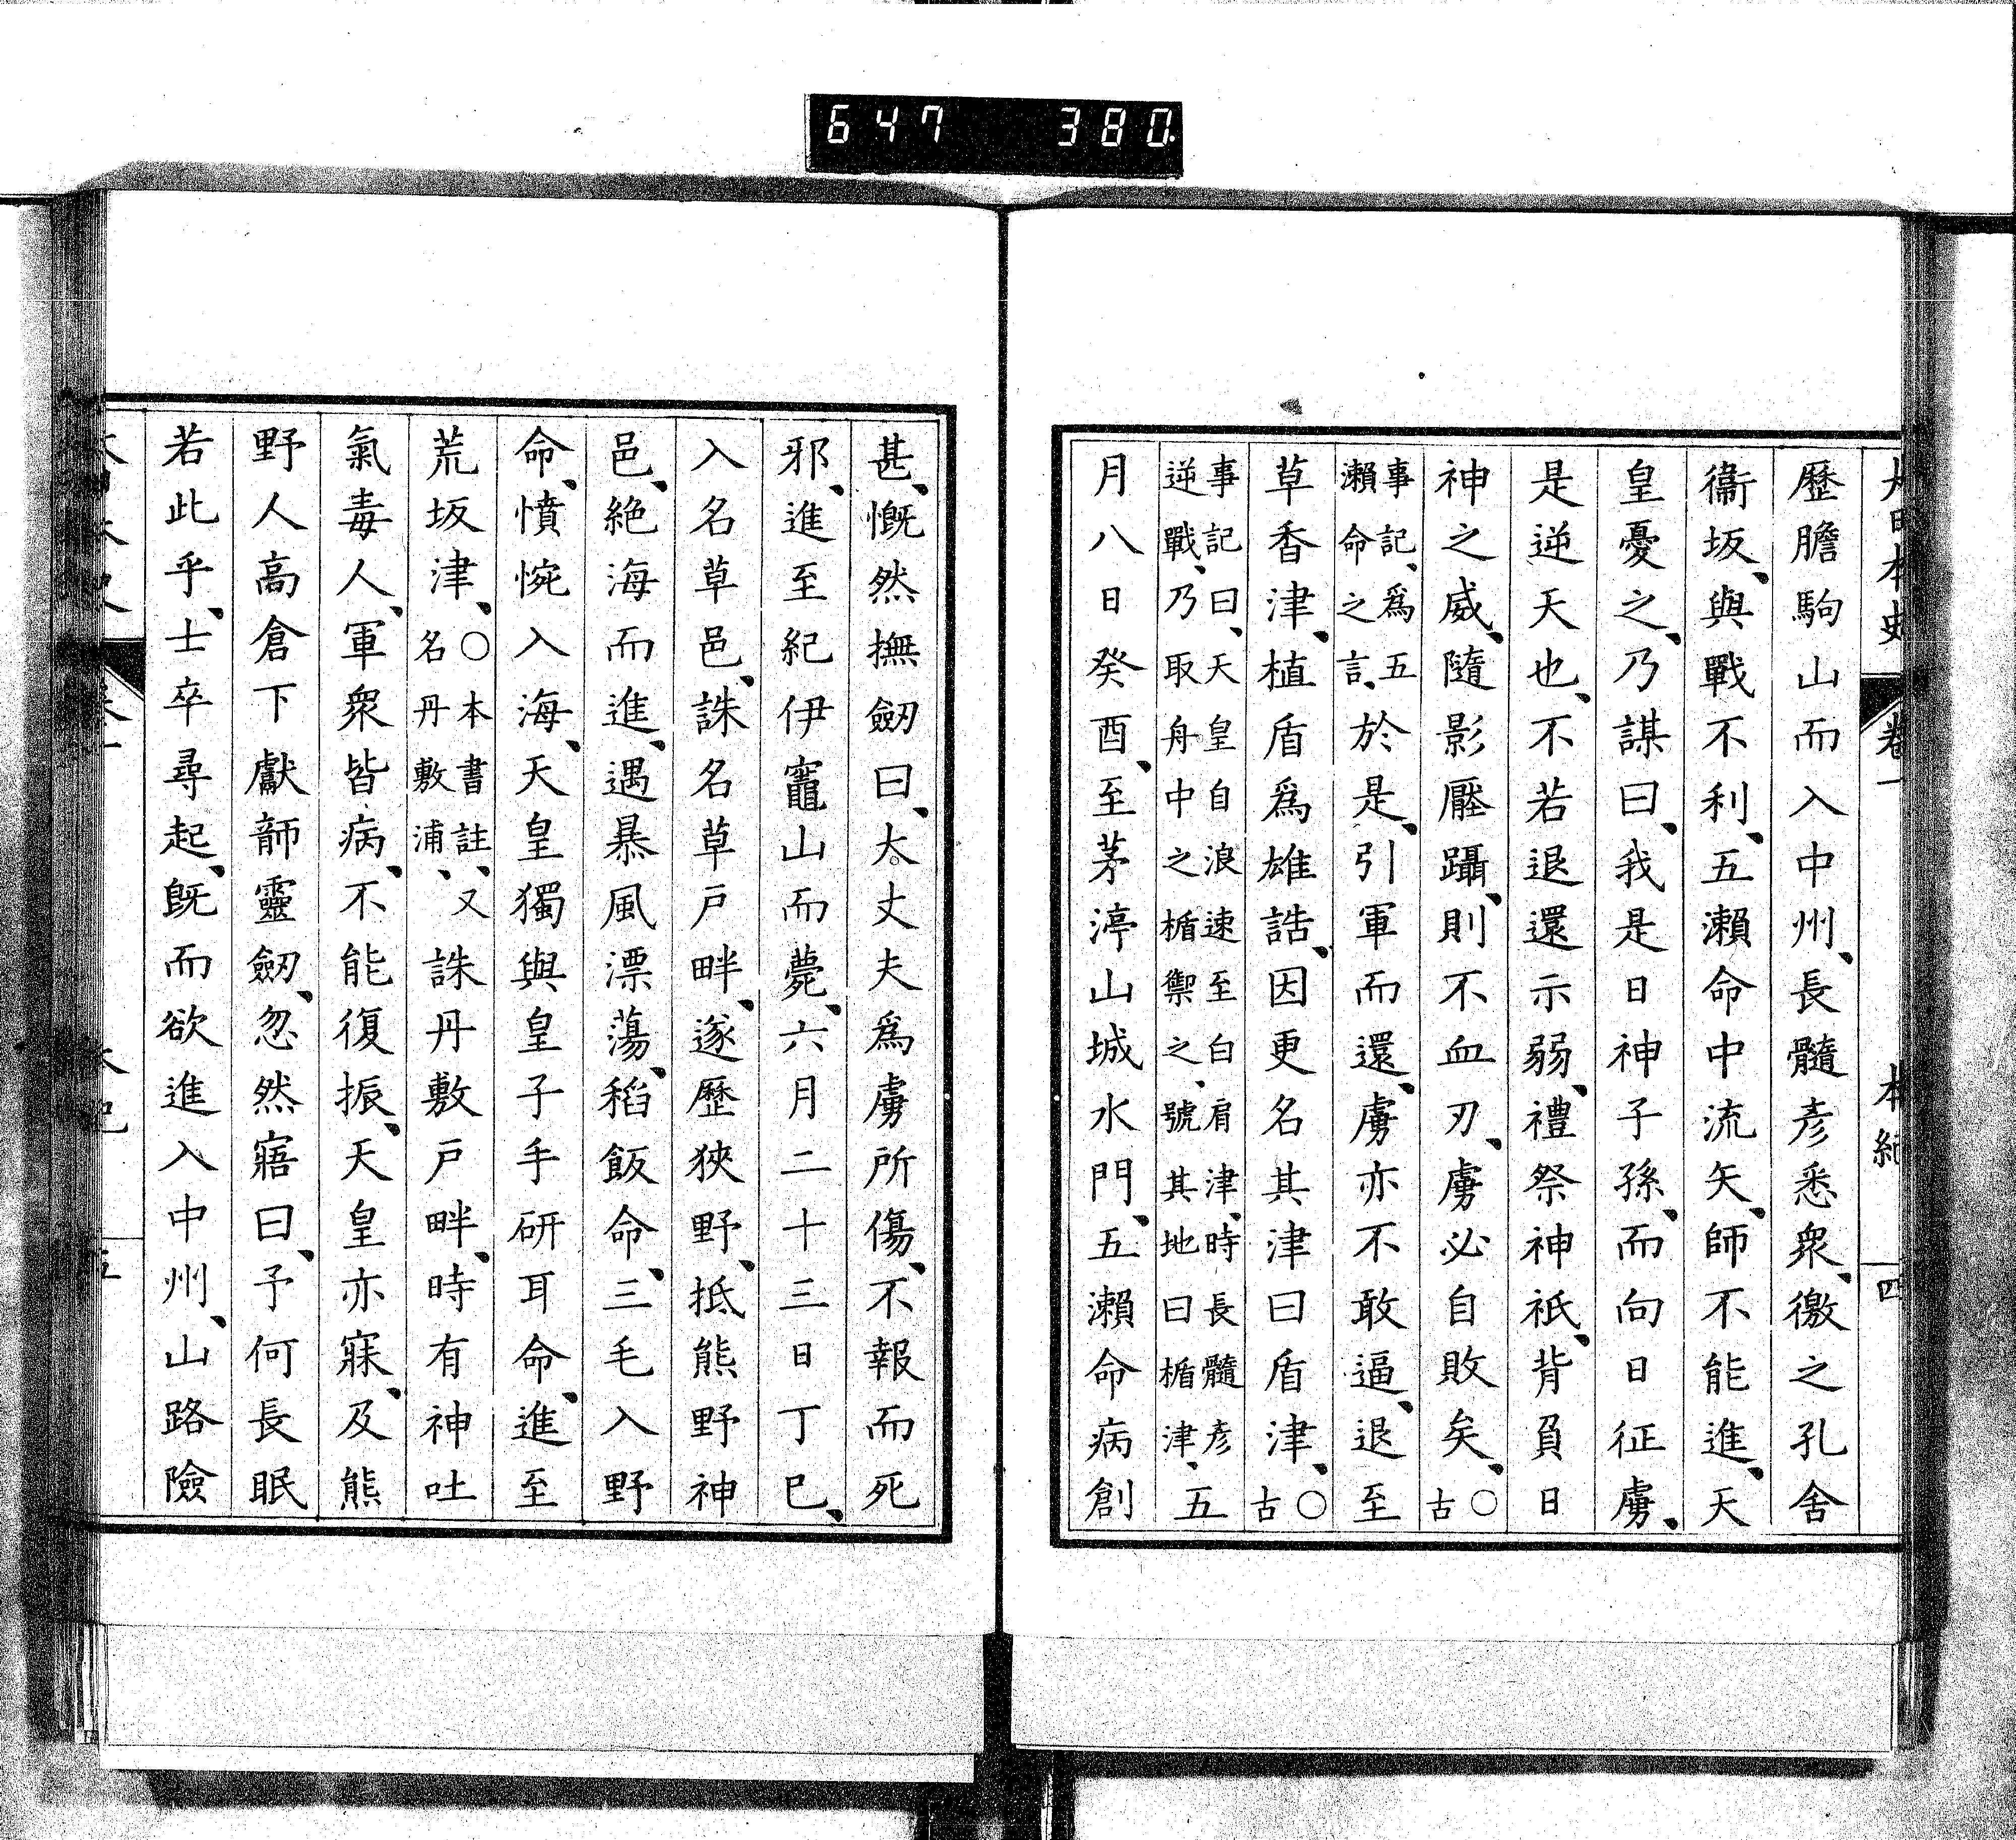 647 380
大日本史 卷一 本紀 四
歷膽駒山而入中州、長髓彥悉衆、徼之孔舍
衞坂、與戰不利、五瀨命中流矢、師不能進、天
皇憂之、乃謀曰、我是日神子孫、而向日征虜、
是逆天也、不若退還示弱、禮祭神祇、背負日
神之威、隨影壓躡、則不血刃、虜必自敗矣、○古
事記、爲五瀨命之言、於是、引軍而還、虜亦不敢逼、退至
草香津、植盾爲雄誥、因更名其津曰盾津、○古
事記曰、天皇自浪速至白肩津、時長髓彥逆戰、乃取舟中之楯禦之、號其地曰楯津、五
月八日癸酉、至茅渟山城水門、五瀨命病創
甚、慨然撫劒曰、大丈夫爲虜所傷、不報而死
邪、進至紀伊竈山而薨、六月二十三日丁巳、
入名草邑、誅名草戶畔、遂歷狹野、抵熊野神
邑、絶海而進、遇暴風漂蕩、稻飯命、三毛入野
命、憤惋入海、天皇獨與皇子手研耳命、進至
荒坂津、○本書註、又名丹敷浦、誅丹敷戶畔、時有神吐
氣毒人、軍衆皆病、不能復振、天皇亦寐、及熊
野人高倉下獻韴靈劒、忽然寤曰、予何長眠
若此乎、士卒尋起、旣而欲進入中州、山路險